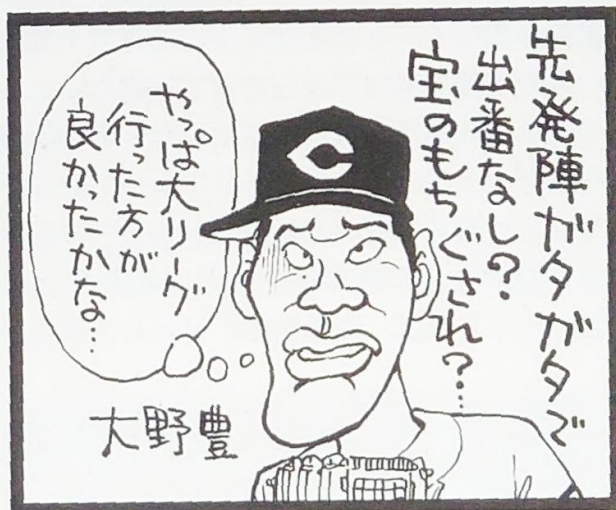 先発陣ガタガタで
出番なし？
宝のもちぐされ？…
やっぱ大リーグ
行った方が
良かったかな…
大野豊
C